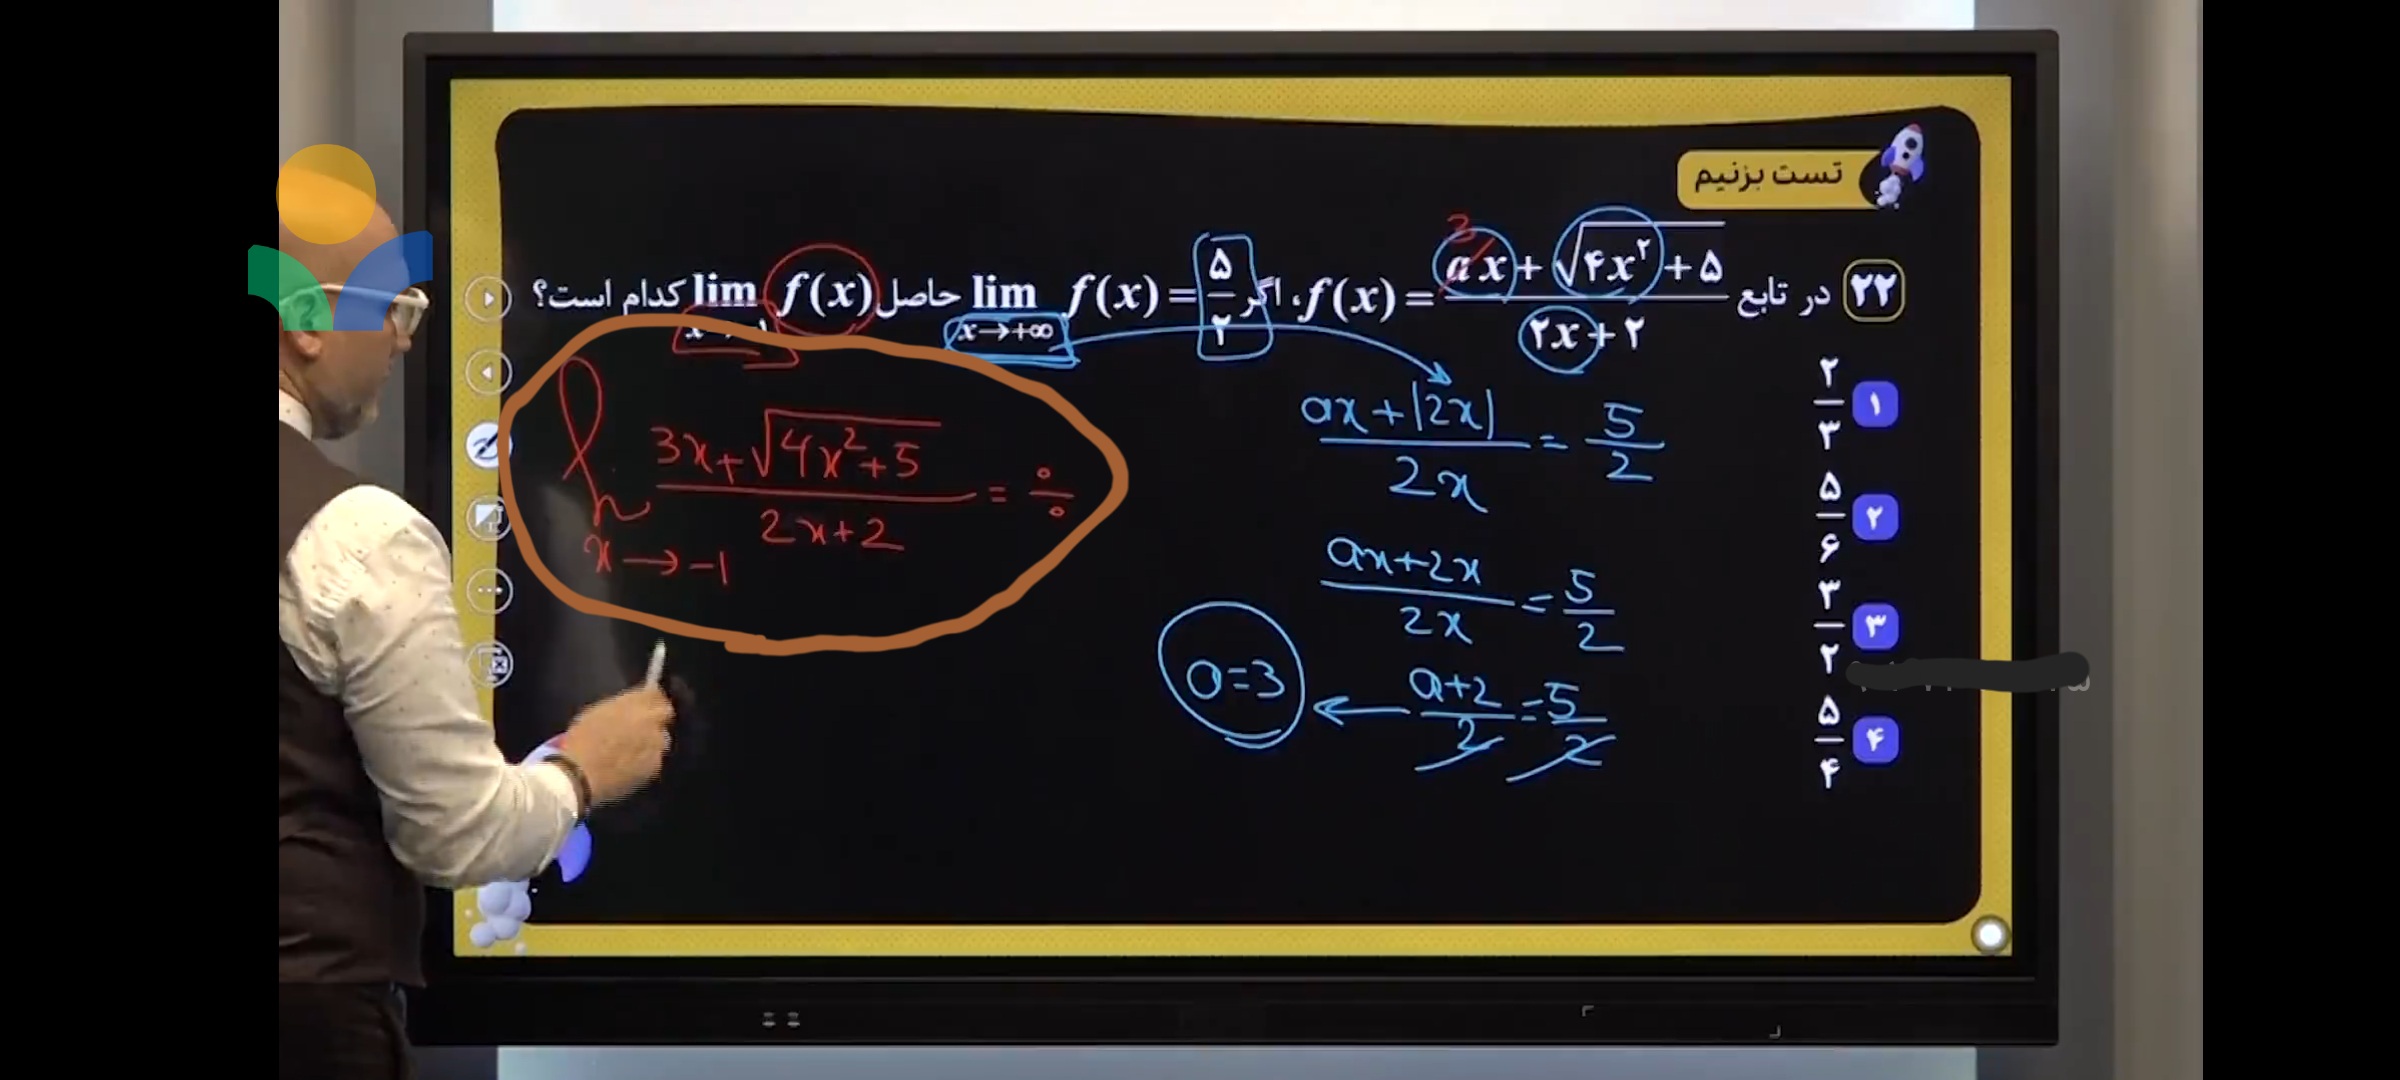 تست بزنیم
۲۲ در تابع f(x) = (ax + √(۴x² + ۵)) / (۲x + ۲)، اگر lim x→+∞ f(x) = ۵/۲ حاصل lim x→-۱ f(x) کدام است؟
3
۱ ۲/۳
۲ ۵/۶
۳ ۳/۲
۴ ۵/۴
(ax + |2x|) / 2x = 5/2
(ax + 2x) / 2x = 5/2
(a+2)/2 = 5/2
a = 3
x → -1 (3x + √(4x² + 5)) / (2x + 2) = 0/0